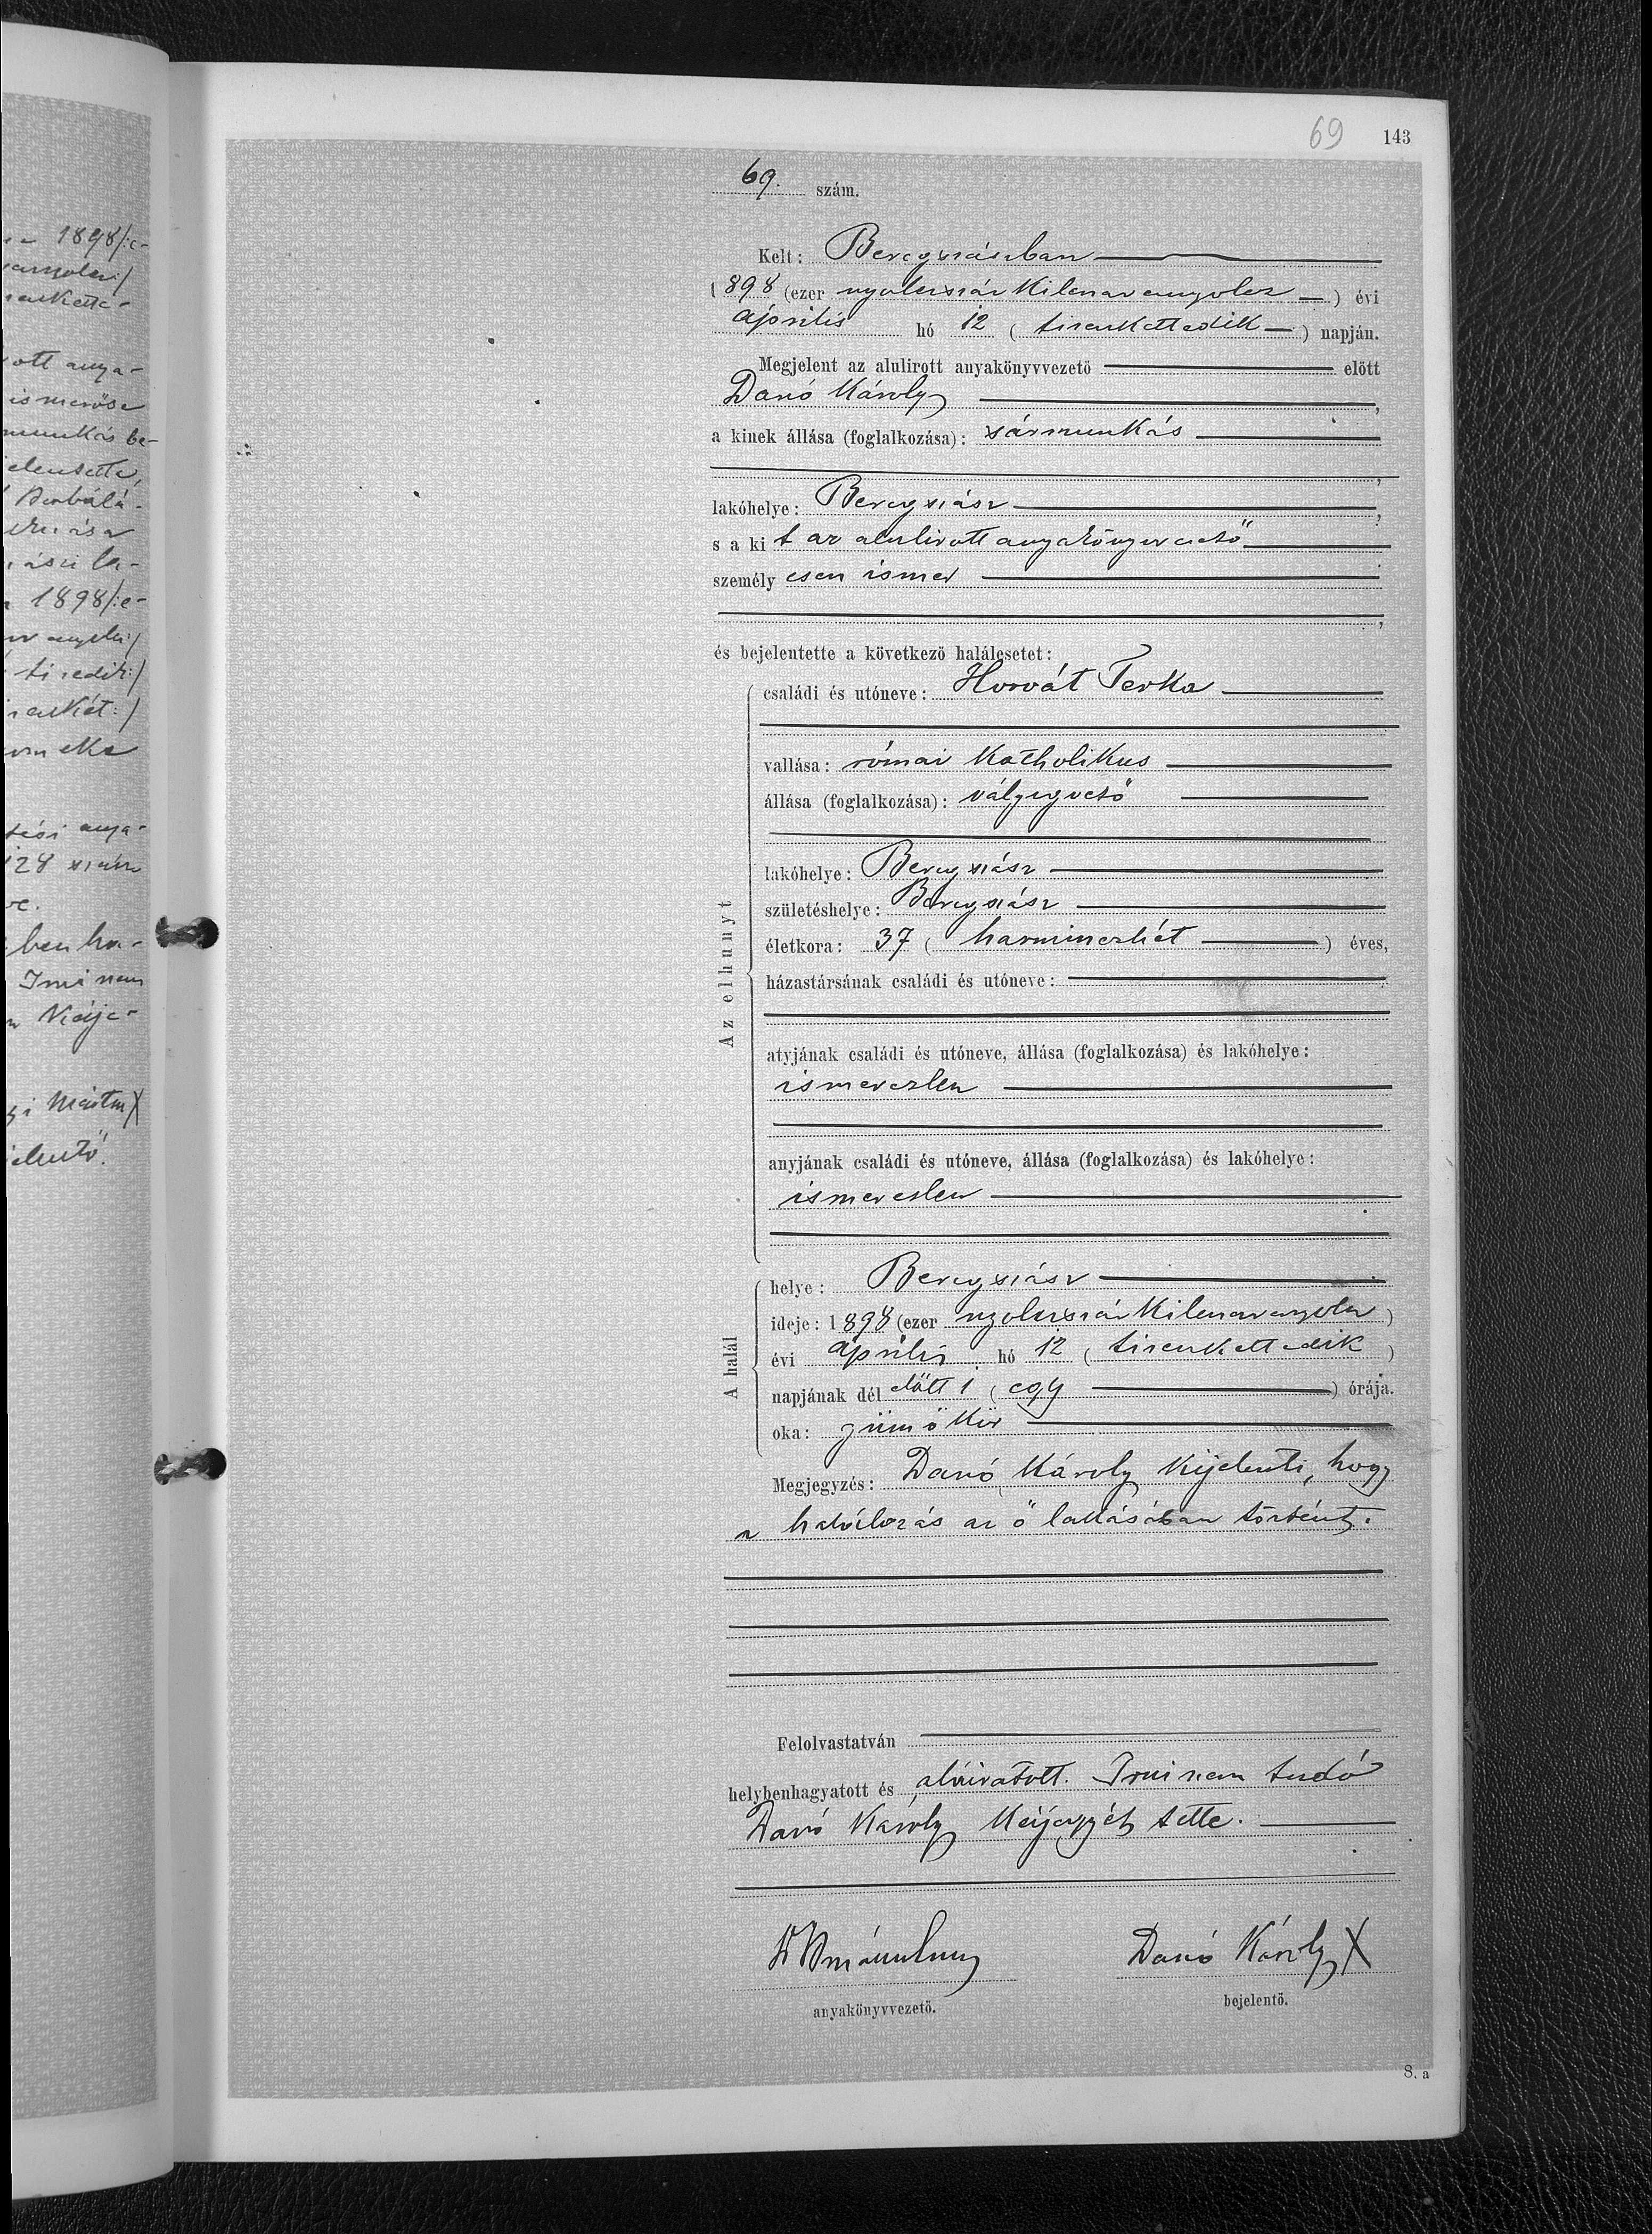 n 1898/:e-
rott anya-
ismerőse
munkás be-
jelentette,
1898/:e-
128 szám
ben ha-
Irni nem
n Kézje-
gi Márton X
jelentő.
69 143
69. szám.
Kelt: Beregszászban
1898 (ezer nyolczszáz kilenczvennyolcz) évi
április hó 12 (tizenkettedik) napján.
Megjelent az alulirott anyakönyvvezető előtt
Danó Károly,
a kinek állása (foglalkozása): sármunkás
,
lakóhelye: Beregszász,
s a kit az alulirott anyakönyvvezető
személyesen ismer
,
és bejelentette a következő halálesetet:
Az elhunyt
családi és utóneve: Horvát Terka
vallása: római katholikus
állása (foglalkozása): vályogvető
lakóhelye: Beregszász
születéshelye: Beregszász
életkora: 37 (harminczhét) éves,
házastársának családi és utóneve:
atyjának családi és utóneve, állása (foglalkozása) és lakóhelye:
ismeretlen
anyjának családi és utóneve, állása (foglalkozása) és lakóhelye:
ismeretlen
A halál
helye: Beregszász
ideje: 1898 (ezer nyolczszáz kilenczvennyolcz)
évi április hó 12 (tizenkettedik)
napjának dél előtt 1 (egy) órája.
oka: gümőkór
Megjegyzés: Danó Károly kijelenti, hogy
a halálozás az ő lakásában történt.
Felolvastatván
helybenhagyatott és aláiratott. Irni nem tudó
Danó Károly kézjegyét tette.
anyakönyvvezető.
Danó Károly X
bejelentő.
8. a